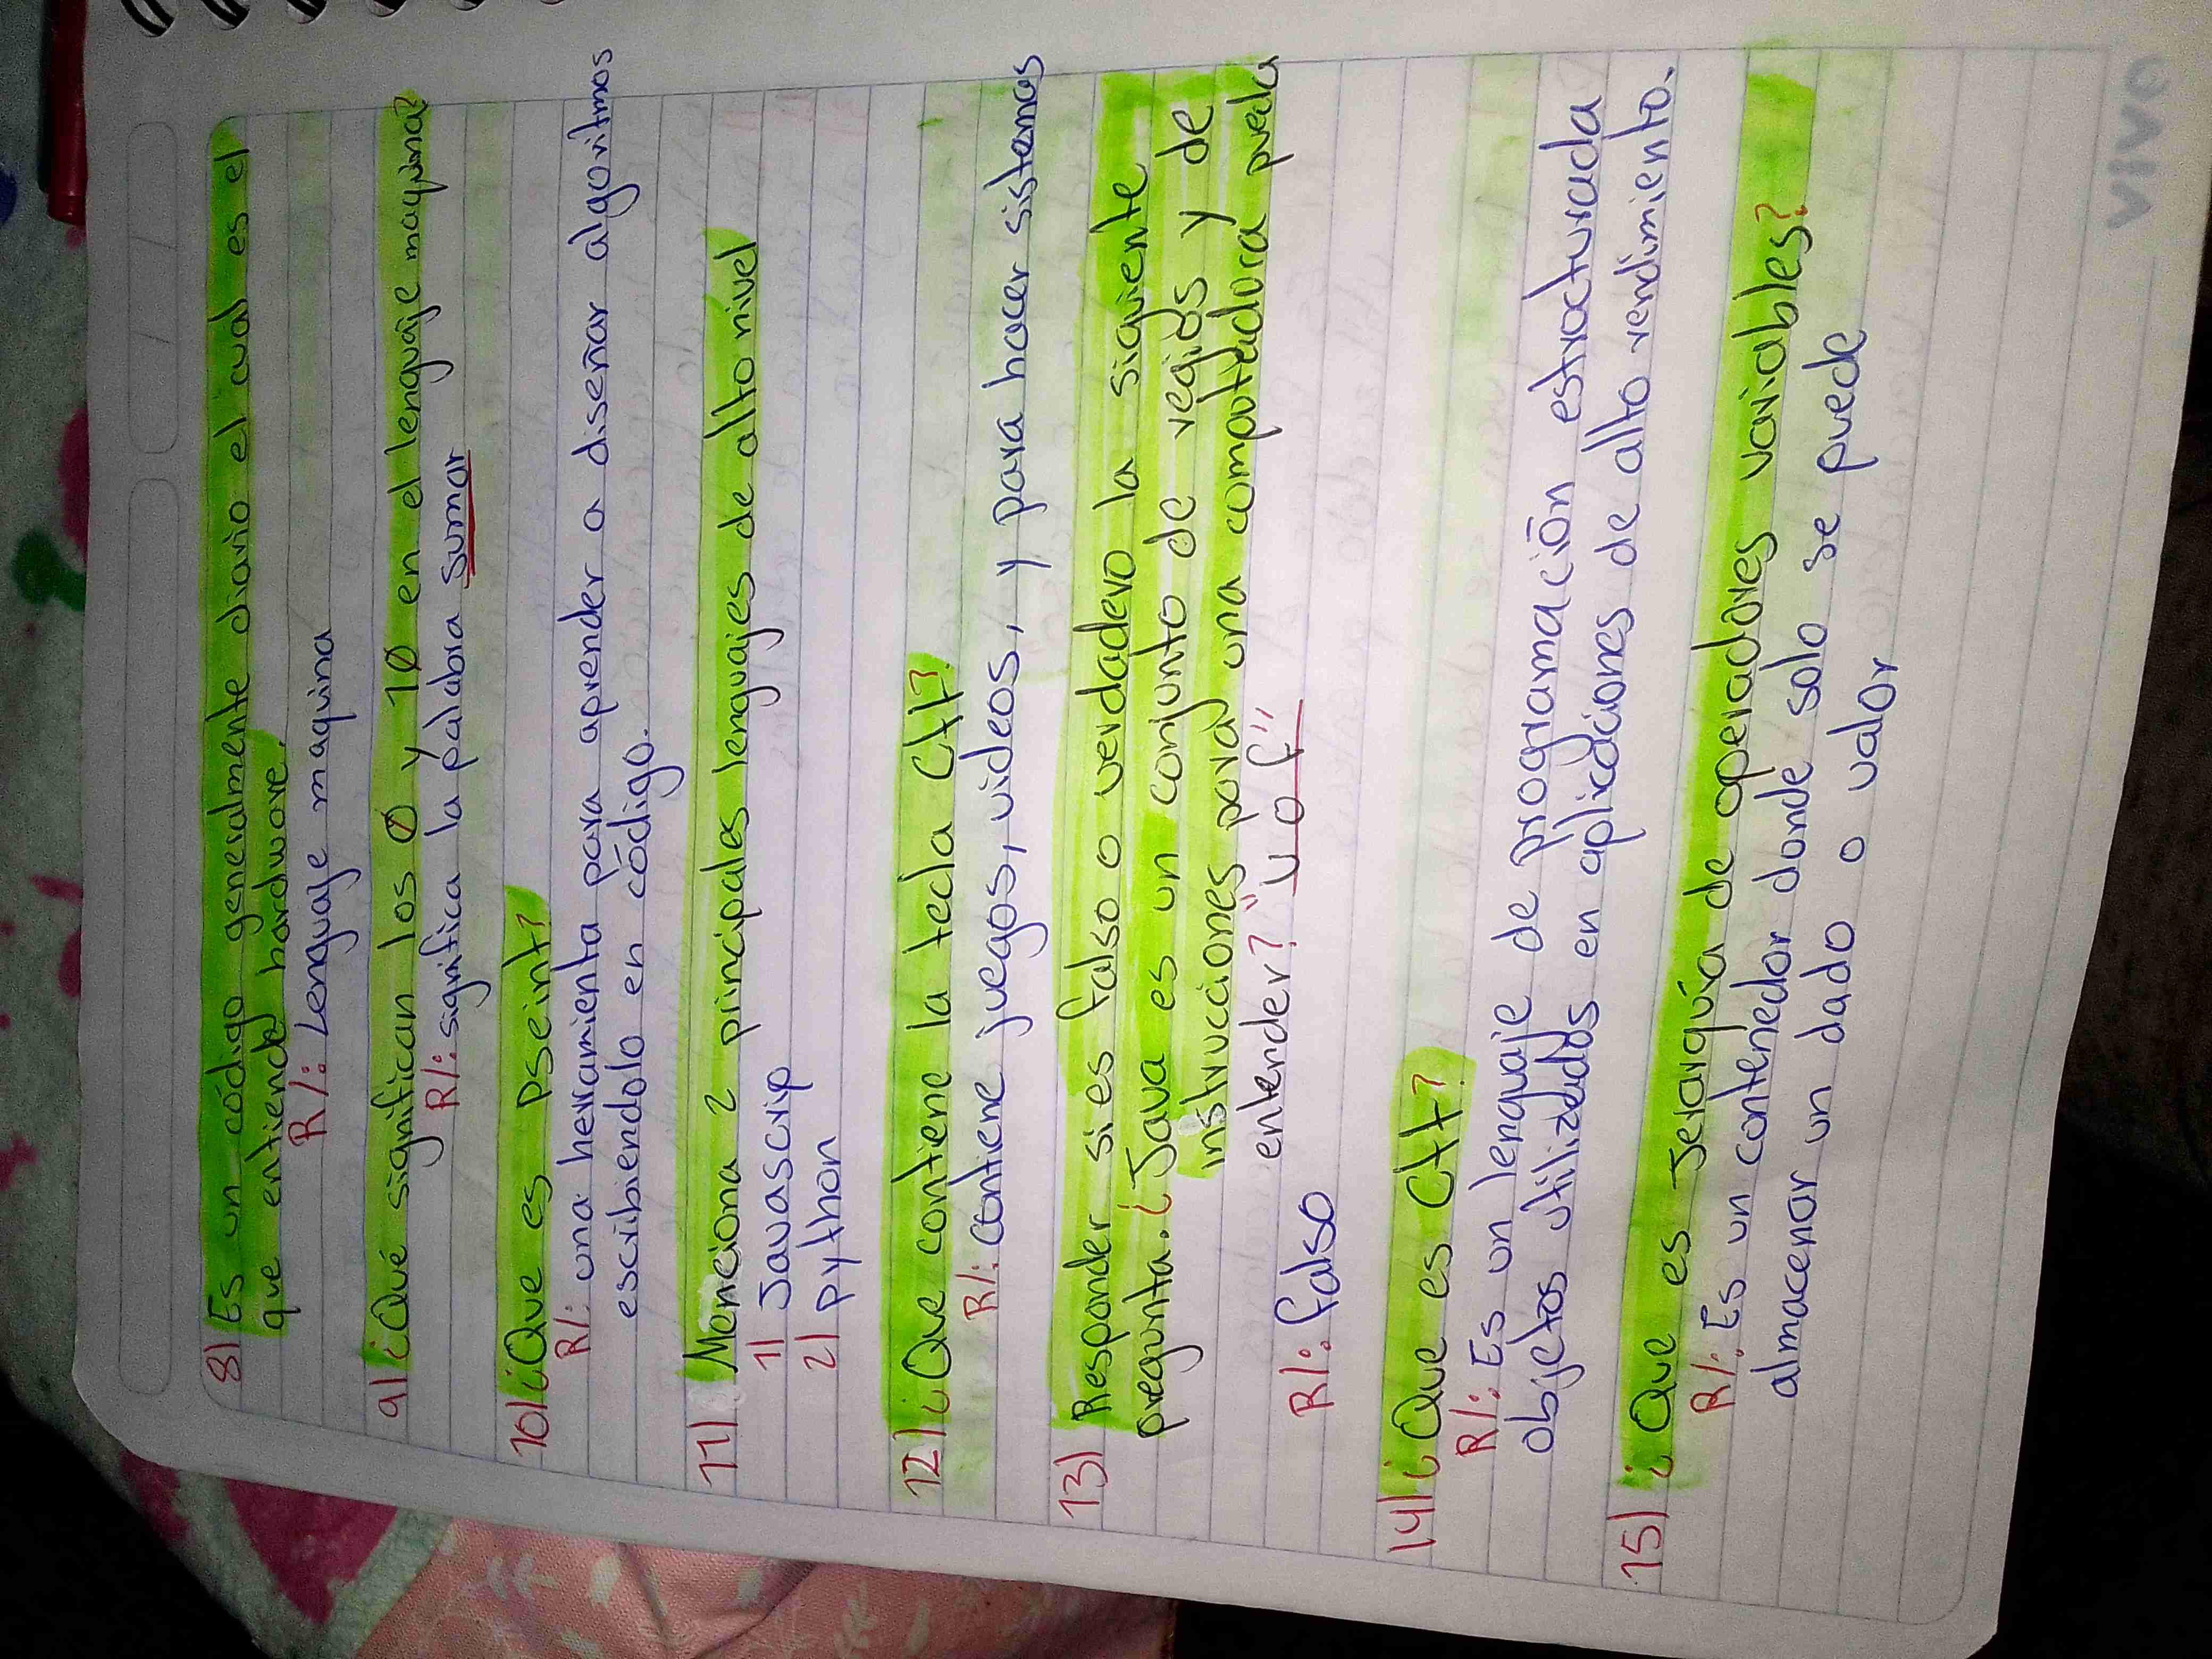 8) Es un código generalmente diario el cual es el
que entiende hardware.
R/: Lenguaje maquina
9) ¿Qué significan los 0 y 10 en el lenguaje maquina?
R/: significa la palabra sumar
10) ¿Que es pseint?
R/: una herramienta para aprender a diseñar algoritmos
escribiendolo en código.
11) Menciona 2 principales lenguajes de alto nivel
1) Javascrip
2) python
12) ¿Que contiene la tecla C++?
R/: contiene juegos, videos, y para hacer sistemas
13) Responder si es falso o verdadero la siguiente
pregunta. ¿Java es un conjunto de reglas y de
instrucciones para una computadora pueda
entender? "v o f"
R/: falso
14) ¿Que es C++?
R/: Es un lenguaje de programación estructurada
objetos utilizados en aplicaciones de alto rendimiento.
15) ¿Que es Jerarquía de operadores variables?
R/: Es un contenedor donde solo se puede
almacenar un dado o valor
vivo